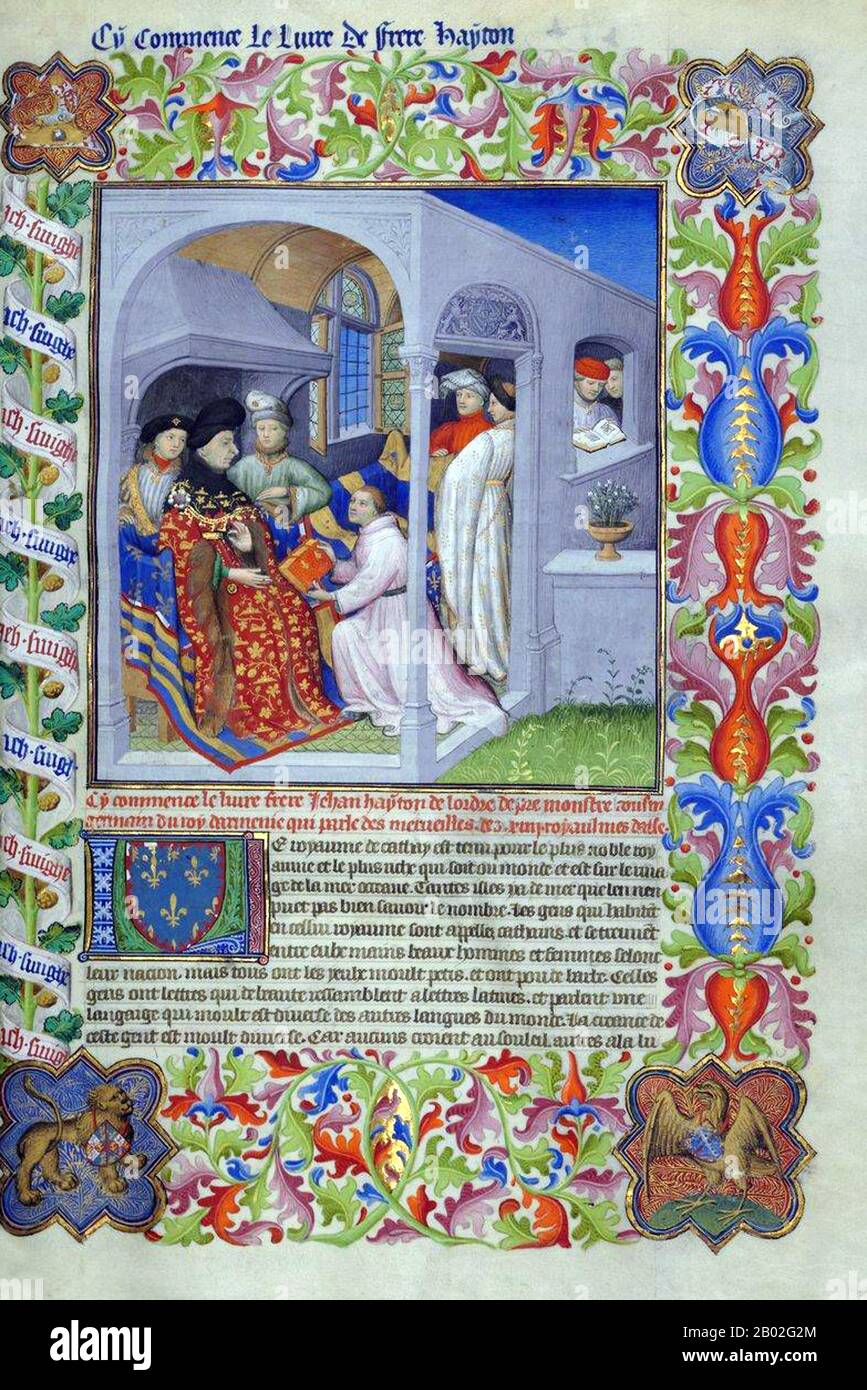 Cÿ Commence Le Liure De frere Haÿton
Cy commence le liure frere Jehan haÿton de lordre de pre monstre cousin
germain du roy darmenie qui parle des merueilles. de royaulmes dasie.
E royaume de cathay est tenu pour le plus noble roy
aume et le plus riche qui soit ou monde et est sur le riua
ge de la mer occeane. Tantes isles ya de mer que len nen
puet pas bien sauoir le nombre. Les gens qui habitēt
en celui royaume sont appellez cathains. et se treuuēt
entre eulx mains beaux hommes et femmes selonc
leur nacion. mais tous ont les yeulx moult petis. et ont pou de barbe. Celles
gens ont lettres qui de beaute ressamblent a lettres latines. et parlent vne
langaige qui moult est diuerse des autres langues du monde. La creance de
ceste gent est moult diuerse. Car aucuns croient au souleil. autres a la lu
alamy
Image ID: 2B02G2M
www.alamy.com